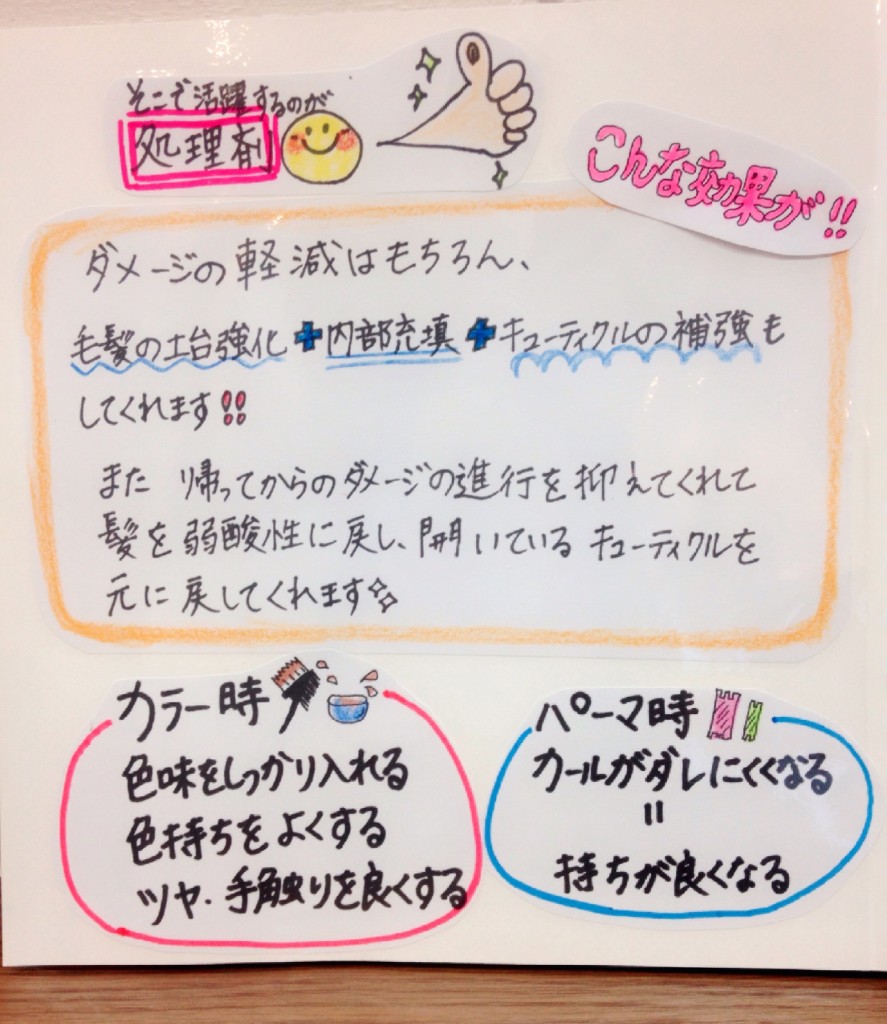 そこで活躍するのが
処理剤
こんな効果が!!
ダメージの軽減はもちろん、
毛髪の土台強化+内部充填+キューティクルの補強も
してくれます!!
また 帰ってからのダメージの進行を抑えてくれて
髪を弱酸性に戻し、開いているキューティクルを
元に戻してくれます
カラー時
色味をしっかり入れる
色持ちをよくする
ツヤ・手触りを良くする
パーマ時
カールがダレにくくなる
=
持ちが良くなる